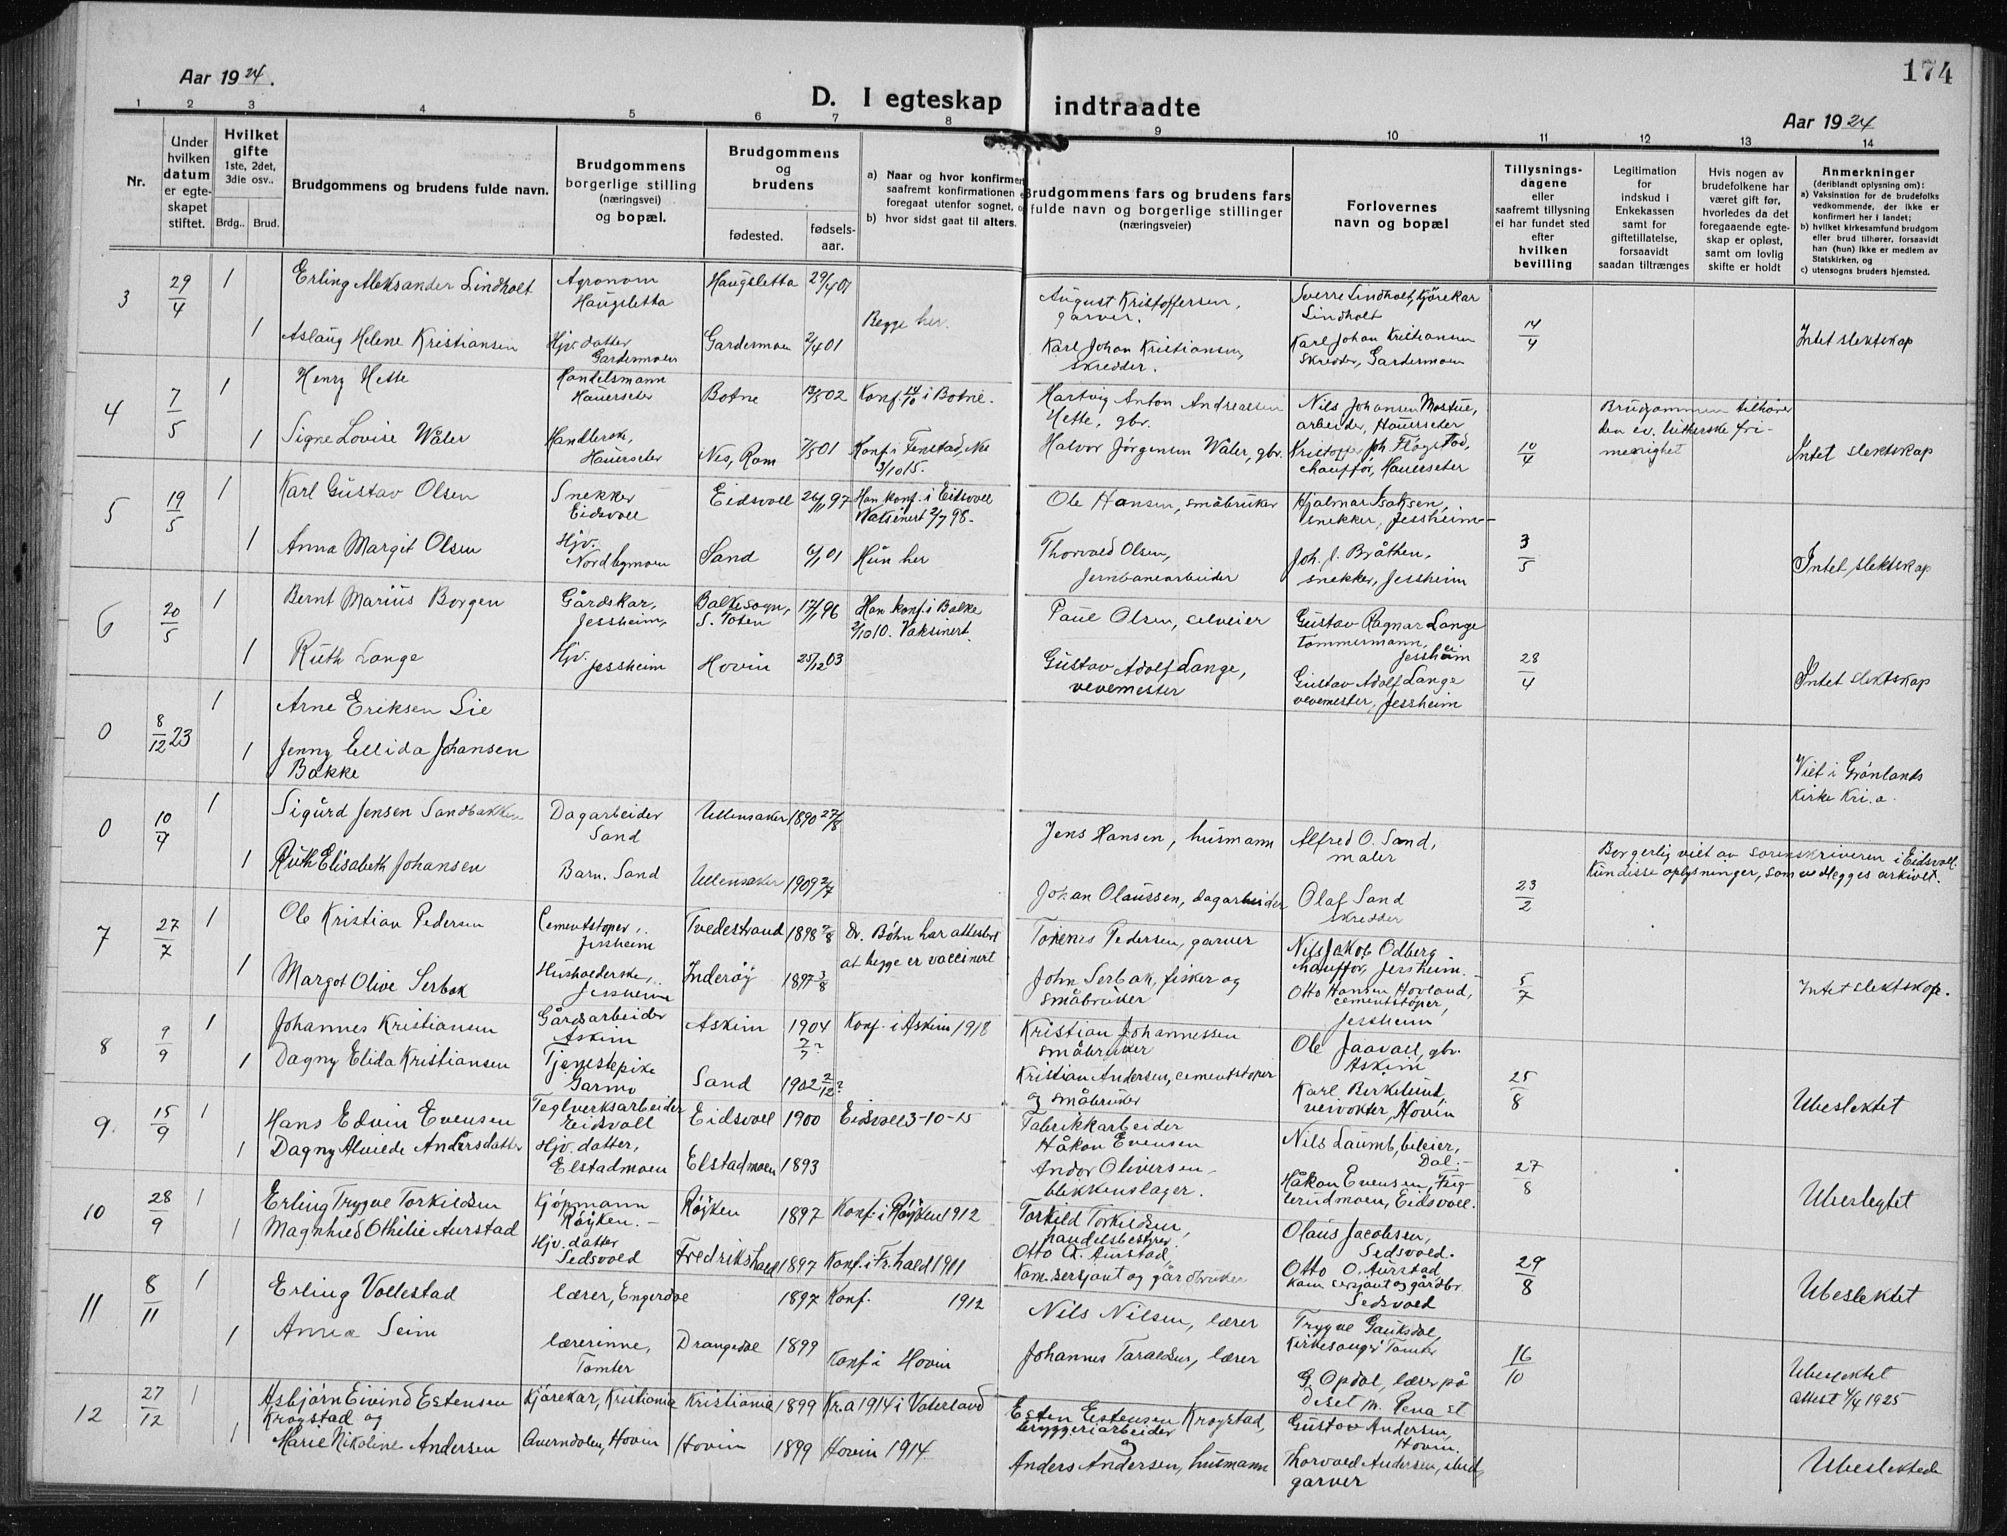 174
Aar 1924.
D. I egteskap indtraadte
Aar 1924
1 2 3 4 5 6 7 8 9 10 11 12 13 14
Nr.
Under hvilken datum er egteskapet stiftet.
Hvilket gifte 1ste, 2det, 3die osv..
Brdg.. Brud.
Brudgommens og brudens fulde navn.
Brudgommens borgerlige stilling (næringsvei) og bopæl.
Brudgommens og brudens
fødested. fødsels-aar.
a) Naar og hvor konfirmert saafremt konfirmationen foregaat utenfor sognet,
b) hvor sidst gaat til alters.
Brudgommens fars og brudens fars fulde navn og borgerlige stillinger (næringsveier)
Forlovernes navn og bopæl
Tillysnings-dagene eller saafremt tillysning ei har fundet sted efter hvilken bevilling
Legitimation for indskud i Enkekassen samt for giftetillatelse, forsaavidt saadan tiltrænges
Hvis nogen av brudefolkene har været gift før, hvorledes da det foregaaende egteskap er opløst, samt om lovlig skifte er holdt
Anmerkninger (deriblandt oplysning om):
a) Vaksination for de brudefolks vedkommende, der ikke er konfirmert her i landet;
b) hvilket kirkesamfund brudgom eller brud tilhører, forsaavidt han (hun) ikke er medlem av Statskirken, og
c) utensogns bruders hjemsted.
3 29/4 1 Erling Aleksander Lindholt Agronom Haugsletta Haugsletta 29/4 01 Begge her. August Kristoffersen, garver. Sverre Lindholt, Kjørekar Lindholt 14/4
1 Aslaug Helene Kristiansen Hjv. datter Gardermoen Gardermoen 2/4 01 Karl Johan Kristiansen, skredder. Karl Johan Kristiansen skredder, Gardermoen Intet slektskap
4 7/5 1 Henry Hette Handelsmann Hauerseter Botne 02 Konf. i Botne. Hartvig Anton Andreassen Hette, gbr. Nils Johansen Mostue, arbeider, Hauerseter 10/4 Brudgommen tilhører den ev. lutherske frimenighet
1 Signe Lovise Wåler Handlerske, Hauerseter Nes, Rom 7/5 01 Konf. i Fenstad, Nes 3/10 15. Halvor Jörgensen Wåler, gbr. Kristoffer Joh. Flögstad, chauffør, Hauerseter Intet slektskap
5 19/5 1 Karl Gustav Olsen Snekker Eidsvoll Eidsvoll 26/11 97 Han konf. i Eidsvoll Vaksinert 2/7 98. Ole Hansen, småbruker Hjalmar Isaksen, snekker, Jessheim 3/5
1 Anna Margit Olsen Hjv. Nordbymoen Sand 6/1 01 Hun her Thorvald Olsen, jernbanearbeider Joh. J. Bråthen, snekker, Jessheim Intet slektskap
6 20/5 1 Bernt Marius Borgen Gårdskar, Jessheim, Balke sogn, S. Toten 17/11 96 Han konf. i Balke 2/10 10. Vaksinert. Paul Olsen, selveier Gustav Ragnar Lange tömmermann, Jessheim 28/4
1 Ruth Lange Hjv. Jessheim Hovin 25/12 03 Gustav Adolf Lange, vevemester Gustav Adolf Lange vevemester, Jessheim Intet slektskap
0 8/12 23 1 Arne Eriksen Lie
1 Jenny Ellida Johansen Bakke Viet i Grønlands Kirke Kri.a.
0 10/4 1 Sigurd Jensen Sandbakken Dagarbeider Sand Ullensaker 1890 27/8 Jens Hansen, husmann Alfred O. Sand, maler Borgerlig viet av sorenskriveren i Eidsvoll. Kun disse oplysninger, som vedlegges arkivet. 23/2
1 Ruth Elisabeth Johansen Barn. Sand Ullensaker 1909 2/7 Johan Olaussen, dagarbeider Olaf Sand skredder
7 27/7 1 Ole Kristian Pedersen Cementstøper, Jessheim Tvedestrand 1898 Dr. Böhn har attestert at begge er vaccinert Torenes Pedersen, garver Nils Jakob Odberg chauffør, Jessheim. 5/7
1 Margot Olive Serbak Husholderske, Jessheim Inderøy 1897 3/8 John Serbak, fisker og småbruker Otto Hansen Hovland, cementstøper, Jessheim Intet slektskap.
8 9/9 1 Johannes Kristiansen Gårdsarbeider Askim Askim 1904 Konf. i Askim 1918 Kristian Johannessen småbruker Ole Jaavall, gbr. Askim 25/8
1 Dagny Elida Kristiansen Tjenestepike Garmo Sand 1902 2/12? Kristian Andersen, cementstøper og småbruker Karl Birkelund, veivokter, Hovin Ubeslektet
9. 15/9 1 Hans Edvin Evensen Teglverksarbeider Eidsvoll Eidsvoll 1900 Eidsvoll 3-10-15 Fabrikkarbeider Håkon Evensen Nils Laumb, bileier, Dal. 27/8
1 Dagny Alvilde Andersdatter Hjv. datter, Elstadmoen Elstadmoen 1893 Andor Oliversen blikkenslager. Håkon Evensen, Teglerudmoen, Eidsvoll. Ubeslegtet
10 28/9 1 Erling Trygve Torkildsen Kjöpmann Röyken. Röyken 1897 Konf. i Röyken 1912 Torkild Torkildsen, handelsbestyrer Olaus Jacobsen, Sedsvold. 29/8
1 Magnhild Othilie Aurstad Hjv. datter Sedsvold Fredrikshald 1897 Konf. i Fr.hald 1911 Otto O. Aurstad, Kom.sersjant og gårdbruker Otto O. Aurstad Kom sersjant og gårdbr Sedsvold Ubeslektet
11 8/11 1 Erling Vollestad lærer, Engerdal 1897 Konf. 1912 Nils Nilsen, lærer Trygve Gauksdal, Kirkesanger Tomter 16/10
1 Anna Seim lærerinne, Tomter Drangedal 1899 Konf i Hovin Johannes Taraldsen, lærer G. Opdal, lærer på Diset m. Rena st Ubeslektet attest 4/4 1925
12 27/12 1 Asbjørn Eivind Estensen Krogstad og Kjørekar, Kristiania Kristiania 1899 Kr.a 1914 i Vaterland Esten Estensen Krogstad, bryggeriarbeider og Gustav Andersen, Hovin.
1 Marie Nikoline Andersen Averndalen, Hovin Hovin 1899 Hovin 1914. Anders Andersen, husmann Thorvald Andersen, garver Ubeslektede